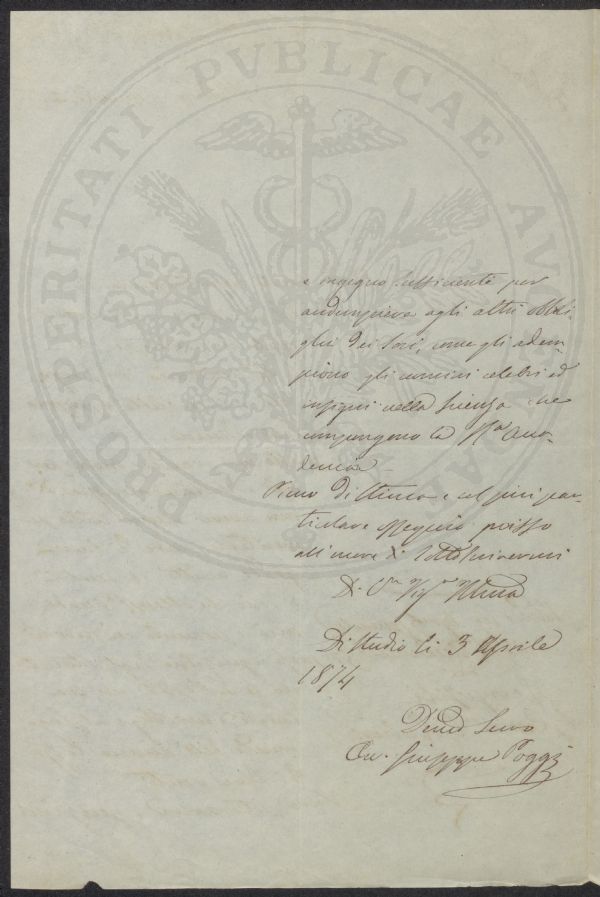 PROSPERITATI PVBLICAE AVGENDAE
e ingegno sufficiente per
andempiere agli altri obbli-
ghi dei Soci, come gli adem-
piono gli uomini celebri ed
insigni nella Scienza che
compongono la Rª Acca-
demia.
Pieno di stima e col più par-
ticolare ossequio passo
all'onore di sottoscrivermi
Di Studio li 3 Aprile
1874
Devmo Servo
Giuseppe Poggi